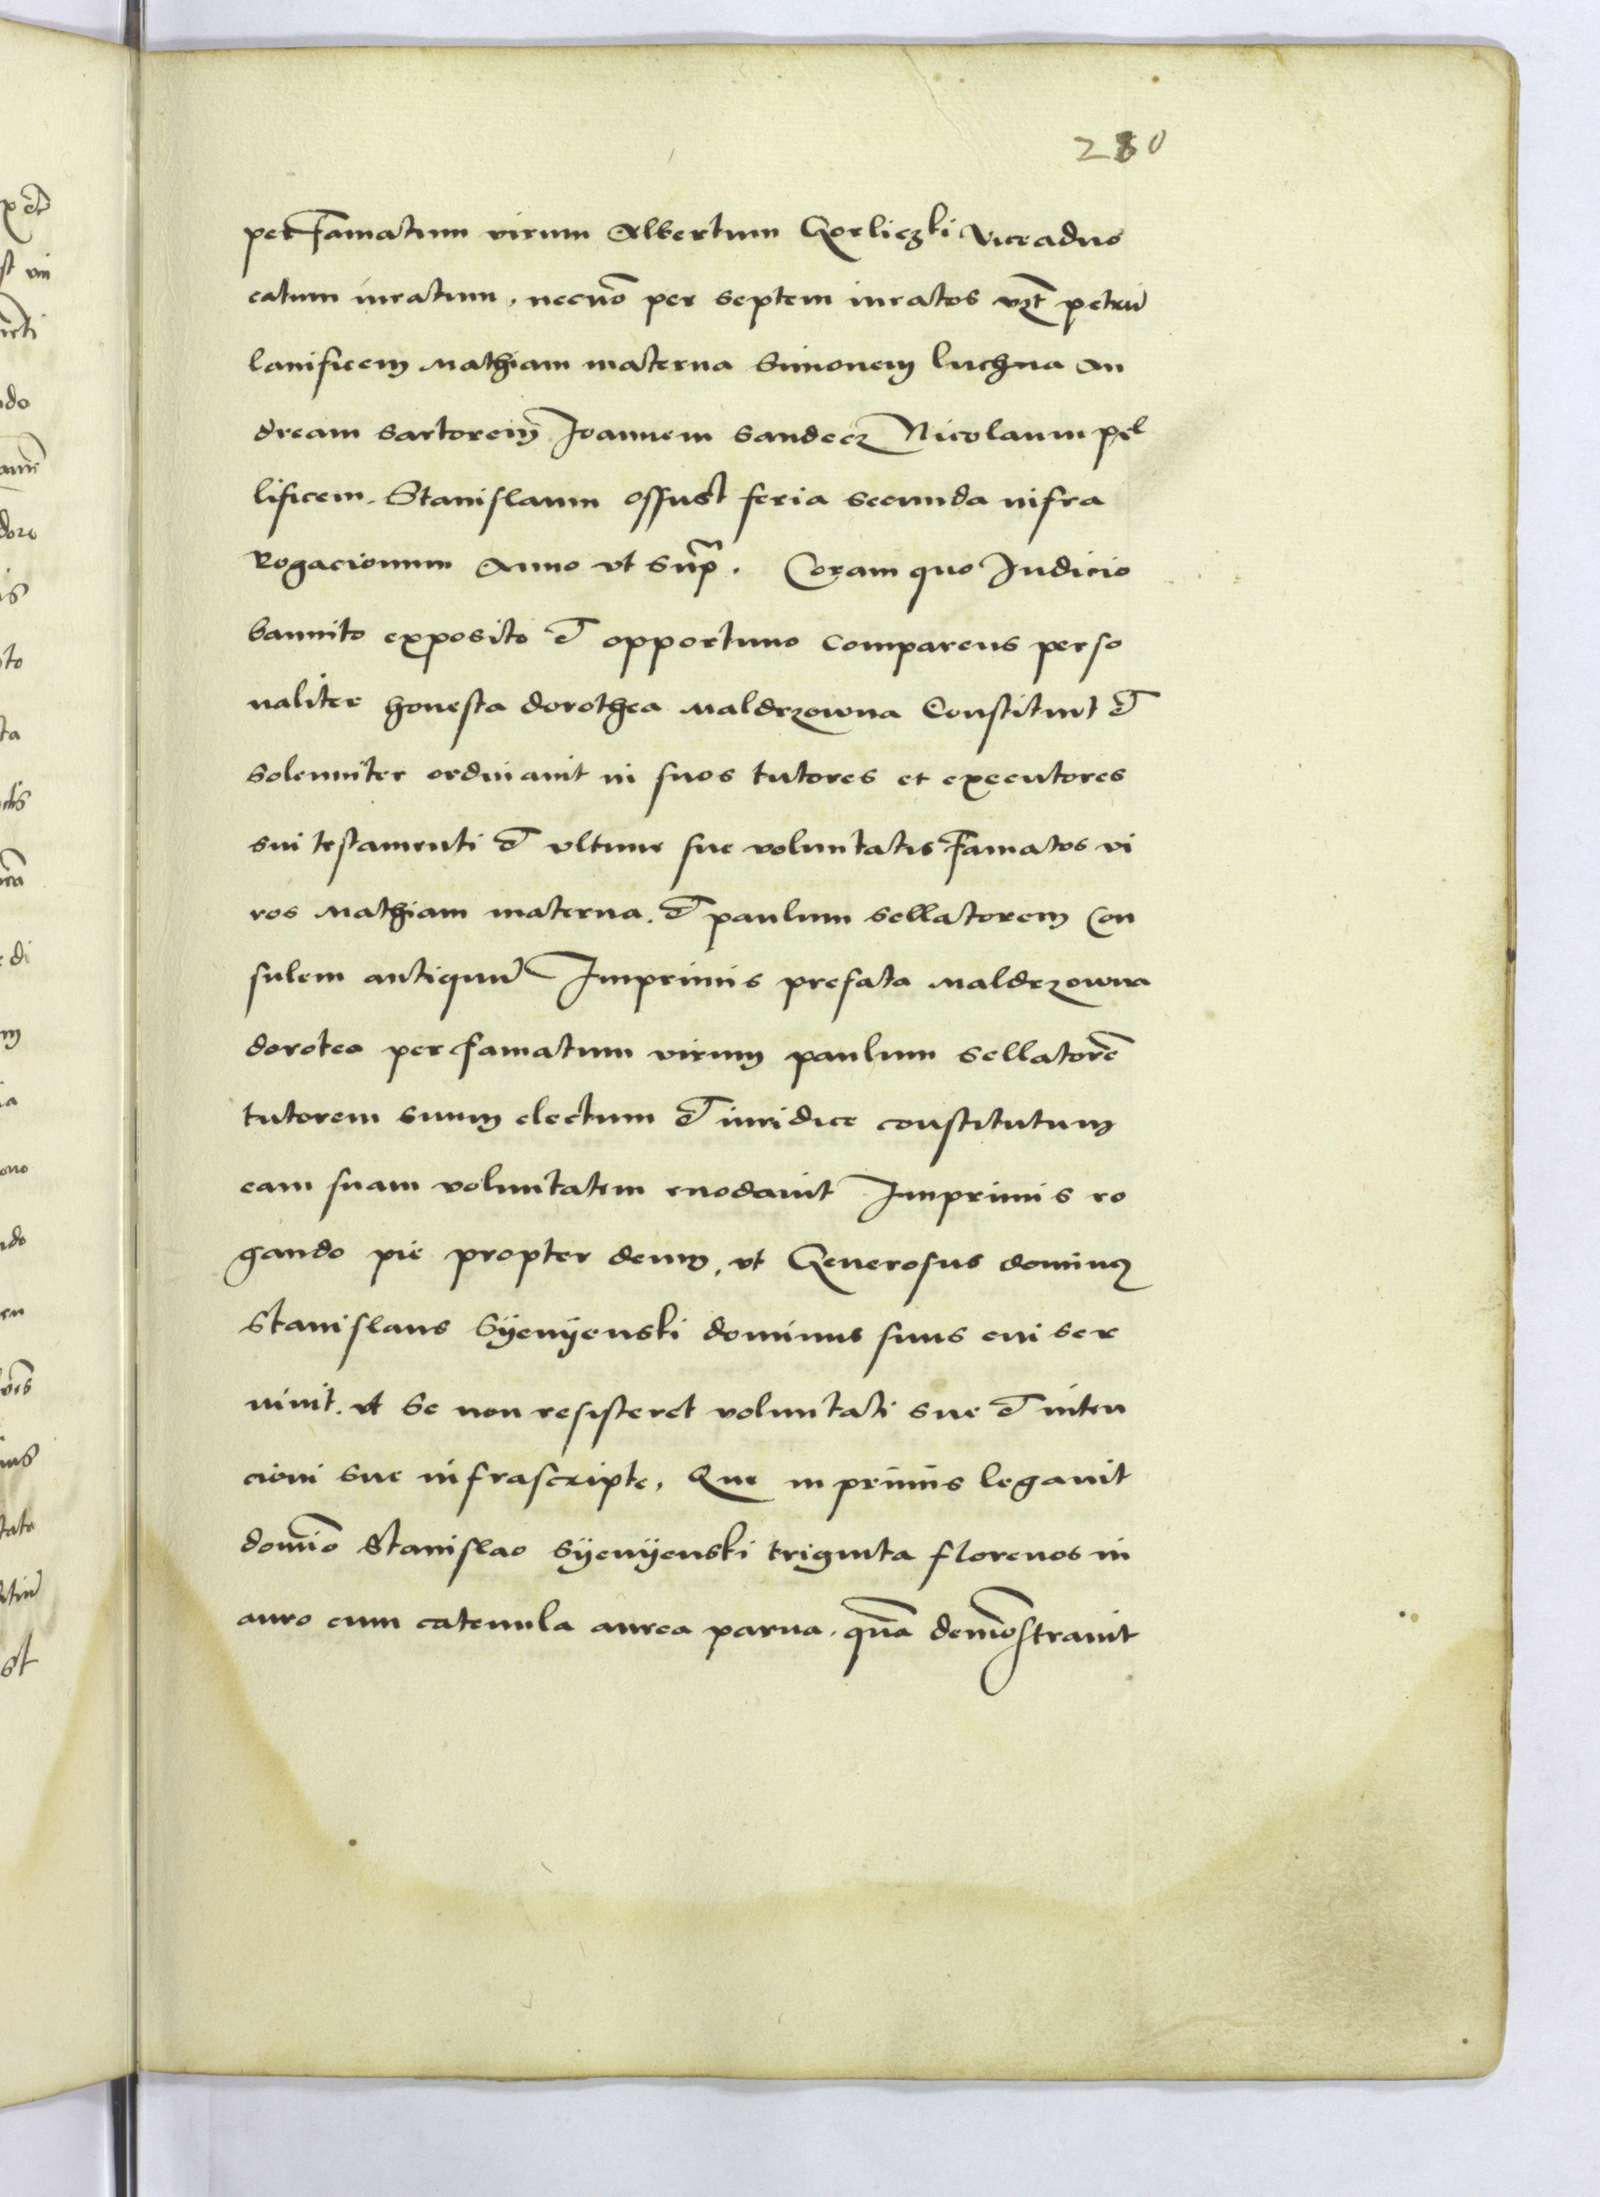 280
per famatum virum Albertum Gorliczki viceaduo
catum iuratum, necnō per septem iuratos vzt petrū
lanificem Mathiam materna Simonem luchna An
dream sartorem Joannem sandecz Nicolaum pel
lificem. Stanislaum ossust feria secunda infra
Rogacionum Anno vt Sup̄. Coram quo Judicio
bannito exposito et opportuno comparens perso
naliter honesta dorothea Maldrzowna Constituit et
solemniter ordinauit in suos tutores et executores
sui testamenti et vltime sue voluntatis famatos vi
ros Mathiam materna. et paulum sellatorem Con
sulem antiquū Imprimis prefata Maldrzowna
dorotea per famatum virum paulum sellatorē
tutorem suum electum et iuridice constitutum
eam suam voluntatem enodauit Imprimis ro
gando pie propter deum, vt Generosus dominus
Stanislaus Syenyenski dominus suus cui ser
uiuit. vt se non resisteret voluntati sue et inten
cioni sue infrascripte, Que in primis legauit
domīo Stanislao Syenyenski triginta florenos in
auro cum catenula aurea parua. quā demōstrauit